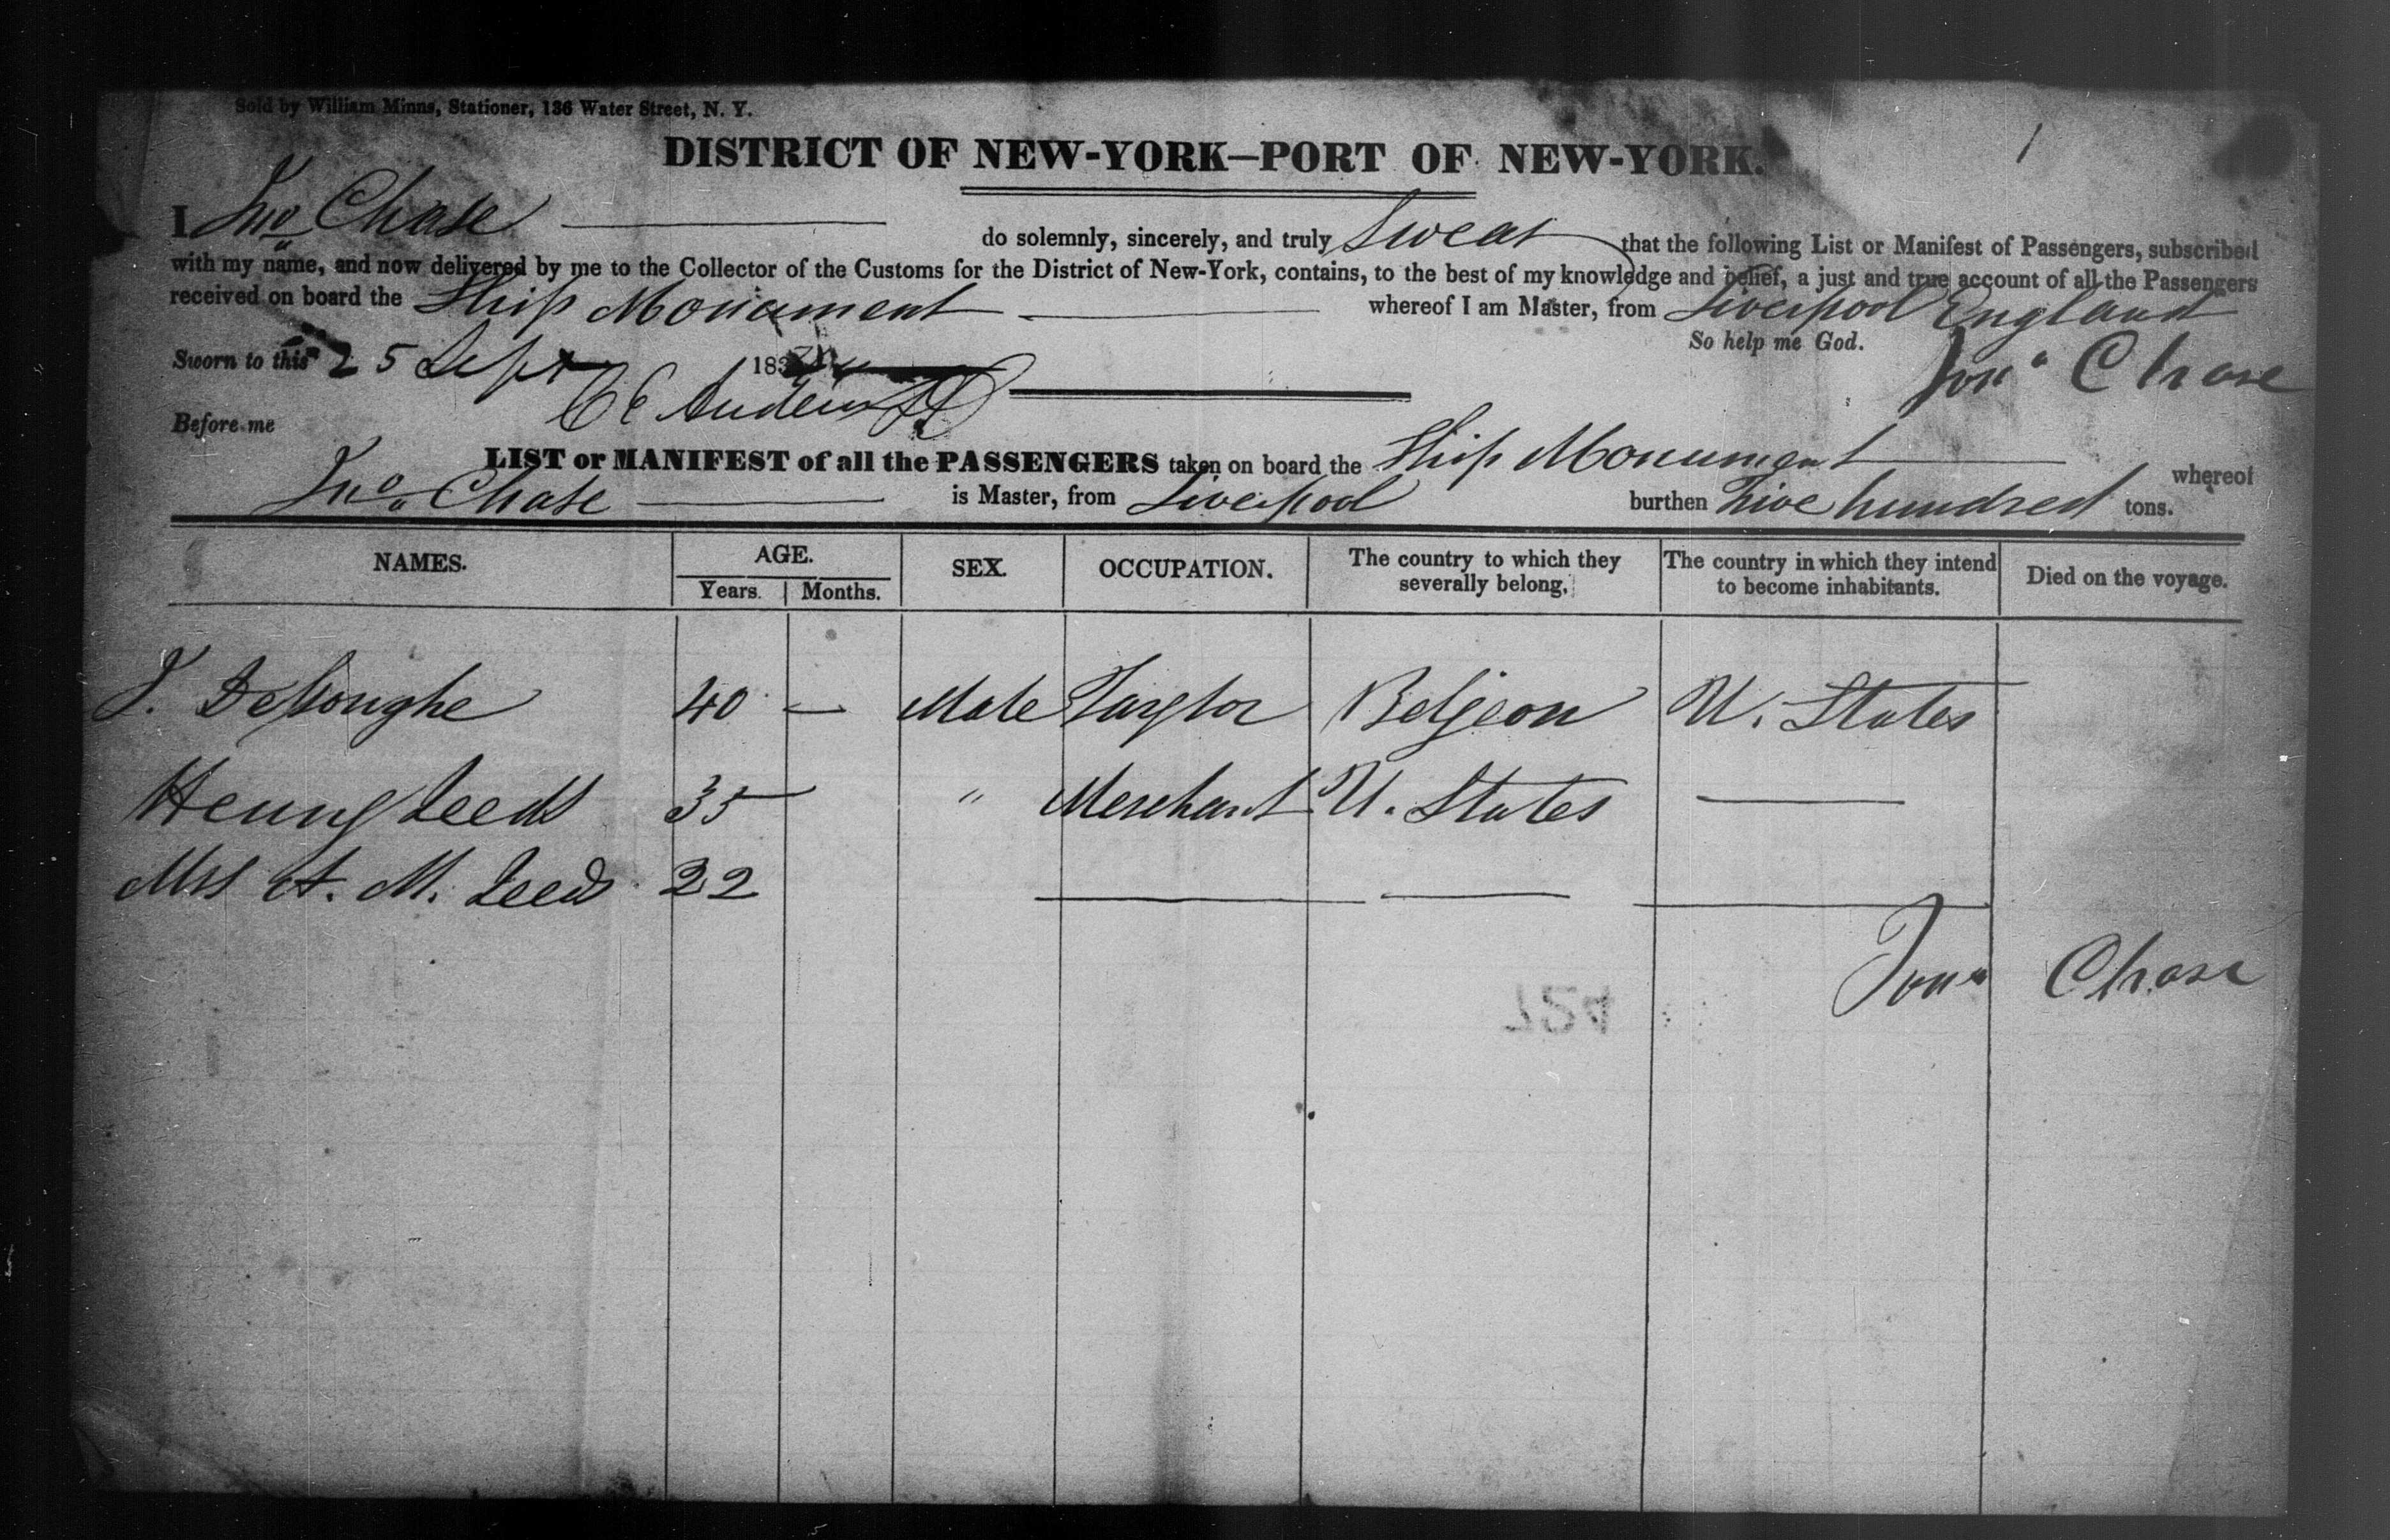 Sold by William Minns, Stationer, 136 Water Street, N. Y.
1
DISTRICT OF NEW-YORK—PORT OF NEW-YORK.
I Jno Chase do solemnly, sincerely, and truly Swear that the following List or Manifest of Passengers, subscribed
with my name, and now delivered by me to the Collector of the Customs for the District of New-York, contains, to the best of my knowledge and belief, a just and true account of all the Passengers
received on board the Ship Monument whereof I am Master, from Liverpool England
So help me God.
Sworn to this 25 Sept 183
Jona Chase
Before me
LIST or MANIFEST of all the PASSENGERS taken on board the Ship Monument whereof
Jno Chase is Master, from Liverpool burthen Five hundred tons.
NAMES. AGE. SEX. OCCUPATION. The country to which they severally belong. The country in which they intend to become inhabitants. Died on the voyage.
Years. Months.
J. 40 — Male Taylor Belgeon U. States
Henry Leeds 35 — " Merchant U. States —
Mrs A. M. Leeds 22 — — —
Jona Chase
427